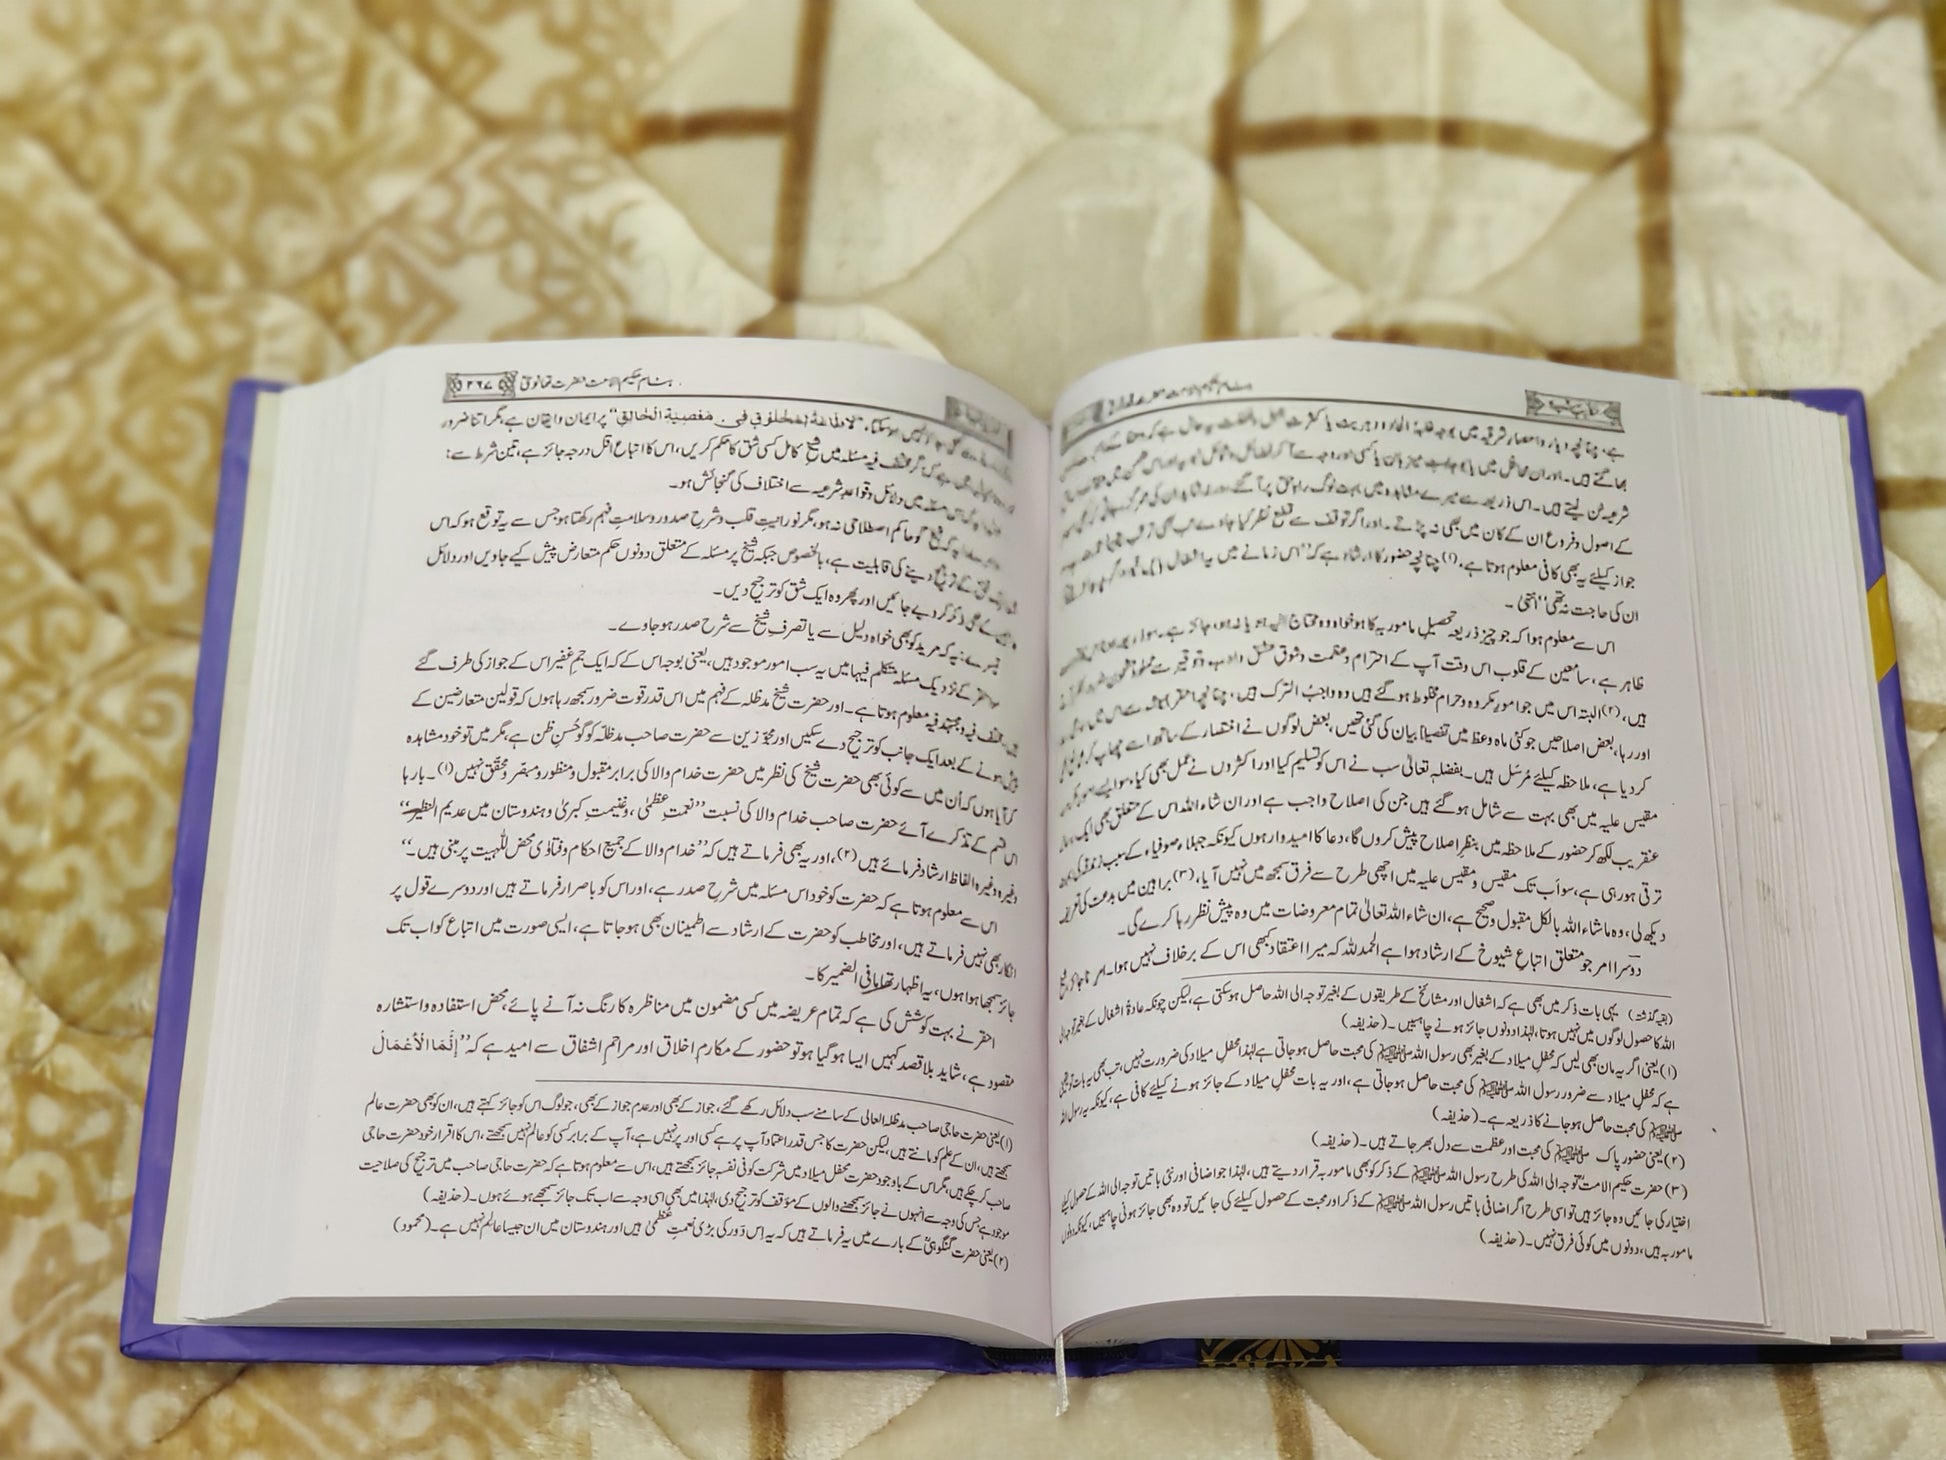 ہے، چنانچہ دیار و امصار شرقیہ میں بوجہ غلبۂ الحاد و دہریت یا کثرت
بھاگتے ہیں۔ اور ان محافل میں یا
شرعیہ سن لیتے ہیں۔ اس ذریعہ سے میرے مشاہدہ میں بہت لوگ راہ حق پر آگئے ورنہ شاید ان کی عمر گزر جاتی کہ
کے اصول و فروع ان کے کان میں بھی نہ پڑتے۔ اور اگر توقف سے قطع نظر کیا جاوے تب بھی
جواز کیلئے یہ بھی کافی معلوم ہوتا ہے، (۱) چنانچہ حضور کا ارشاد ہے کہ ”اس زمانے میں یہ اشغال
ان کی حاجت نہ تھی“ انتہیٰ۔
اس سے معلوم ہوا کہ جو چیز ذریعہ تحصیلِ مامور بہ کا ہو خواہ وہ محتاج الیہ ہو یا نہ ہو، جائز ہے۔
ظاہر ہے، سامعین کے قلوب اس وقت آپ کے احترام و عظمت و شوق عشق و ادب و توقیر سے مملو
ہیں، (۲) البتہ اس میں جو امور مکروہ و حرام مخلوط ہوگئے ہیں وہ واجب الترک ہیں، چنانچہ احقر
اور رہا، بعض اصلاحیں جو کئی ماہ وعظ میں تفصیلاً بیان کی گئی تھیں، بعض لوگوں نے اختصار کے ساتھ اسے چھاپ کر
کر دیا ہے، ملاحظہ کیلئے مُرسَل ہیں۔ بفضلہٖ تعالیٰ سب نے اس کو تسلیم کیا اور اکثروں نے عمل بھی کیا، سو ایسے امور
مقیس علیہ میں بھی بہت سے شامل ہوگئے ہیں جن کی اصلاح واجب ہے اور ان شاء اللہ اس کے متعلق بھی ایک
عنقریب لکھ کر حضور کے ملاحظہ میں بنظرِ اصلاح پیش کروں گا، دعا کا امیدوار ہوں کیونکہ جہلاء صوفیاء کے سبب زندقہ کی
ترقی ہو رہی ہے، سو اب تک مقیس و مقیس علیہ میں اچھی طرح سے فرق سمجھ میں نہیں آیا، (۳) براہین میں بدعت کی تعریف
دیکھ لی، وہ ما شاء اللہ بالکل مقبول و صحیح ہے، ان شاء اللہ تعالیٰ تمام معروضات میں وہ پیش نظر رہا کرے گی۔
دوسرا امر جو متعلق اتباعِ شیوخ کے ارشاد ہوا ہے الحمد للہ کہ میرا اعتقاد کبھی اس کے برخلاف نہیں ہوا۔ امر ناجائز شیخ
(بقیہ گذشتہ) یہی بات ذکر میں بھی ہے کہ اشغال اور مشائخ کے طریقوں کے بغیر توجہ الی اللہ حاصل ہوسکتی ہے، لیکن چونکہ عادۃً اشغال کے بغیر توجہ الی
اللہ کا حصول لوگوں میں نہیں ہوتا، لہٰذا دونوں جائز ہونے چاہییں۔ (حذیفہ)
(۱) یعنی اگر یہ مان بھی لیں کہ محفلِ میلاد کے بغیر بھی رسول اللہ ﷺ کی محبت حاصل ہو جاتی ہے لہٰذا محفلِ میلاد کی ضرورت نہیں، تب بھی یہ بات تو یقینی
ہے کہ محفلِ میلاد سے ضرور رسول اللہ ﷺ کی محبت حاصل ہو جاتی ہے، اور یہ بات محفلِ میلاد کے جائز ہونے کیلئے کافی ہے، کیونکہ یہ رسول اللہ
ﷺ کی محبت حاصل ہو جانے کا ذریعہ ہے۔ (حذیفہ)
(۲) یعنی حضور پاک ﷺ کی محبت اور عظمت سے دل بھر جاتے ہیں۔ (حذیفہ)
(۳) حضرت حکیم الامتؒ توجہ الی اللہ کی طرح رسول اللہ ﷺ کے ذکر کو بھی مامور بہ قرار دیتے ہیں، لہٰذا جو اضافی اور نئی باتیں توجہ الی اللہ کے حصول کیلئے
اختیار کی جائیں وہ جائز ہیں تو اسی طرح اگر اضافی باتیں رسول اللہ ﷺ کے ذکر اور محبت کے حصول کیلئے کی جائیں تو وہ بھی جائز ہونی چاہییں، کیونکہ دونوں
مامور بہ ہیں، دونوں میں کوئی فرق نہیں۔ (حذیفہ)
بنام حکیم الامت حضرت تھانویؒ ۲۶۷
”لا طاعة لمخلوق في معصية الخالق“ پر ایمان و ایقان ہے، مگر اتنا ضرور
مختلف فیہ مسئلہ میں شیخ کامل کسی شق کا حکم کریں، اس کا اتباع اقل درجہ جائز ہے، تین شرط سے:
اس مسئلہ میں دلائل و قواعدِ شرعیہ سے اختلاف کی گنجائش ہو۔
کہ شیخ گو عالم اصطلاحی نہ ہو، مگر نورانیتِ قلب و شرحِ صدور و سلامتِ فہم رکھتا ہو جس سے یہ توقع ہو کہ اس
ترجیح دینے کی قابلیت ہے، بالخصوص جبکہ شیخ پر مسئلہ کے متعلق دونوں حکم متعارض پیش کیے جاویں اور دلائل
بھی ذکر کر دیے جائیں اور پھر وہ ایک شق کو ترجیح دیں۔
تیسرے: یہ کہ مرید کو بھی خواہ دلیل سے یا تصرفِ شیخ سے شرح صدر ہو جاوے۔
کے نزدیک مسئلہ متکلم فیہا میں یہ سب امور موجود ہیں، یعنی بوجہ اس کے کہ ایک جم غفیر اس کے جواز کی طرف گئے
ہیں، مختلف فیہ و مجتہد فیہ معلوم ہوتا ہے۔ اور حضرت شیخ مدظلہ کے فہم میں اس قدر قوت ضرور سمجھ رہا ہوں کہ قولین متعارضین کے
پیش ہونے کے بعد ایک جانب کو ترجیح دے سکیں اور مجوّزین سے حضرت صاحب مدظلّہ کو گو حُسنِ ظن ہے، مگر میں تو خود مشاہدہ
کر آیا ہوں کہ اُن میں سے کوئی بھی حضرت شیخ کی نظر میں حضرت خدام والا کی برابر مقبول و منظور و مبصر و محقق نہیں (۱)۔ بارہا
اس قسم کے تذکرے آئے حضرت صاحب خدام والا کی نسبت ”نعمتِ عظمیٰ، و غنیمت کبریٰ و ہندوستان میں عدیم النظیر“
وغیرہ وغیرہ الفاظ ارشاد فرمائے ہیں (۲)، اور یہ بھی فرماتے ہیں کہ ”خدام والا کے جمیع احکام و فتاوٰی محض للّٰہیت پر مبنی ہیں۔“
اس سے معلوم ہوتا ہے کہ حضرت کو خود اس مسئلہ میں شرح صدر ہے، اور اس کو باصرار فرماتے ہیں اور دوسرے قول پر
انکار بھی نہیں فرماتے ہیں، اور مخاطب کو حضرت کے ارشاد سے اطمینان بھی ہو جاتا ہے، ایسی صورت میں اتباع کو اب تک
جائز سمجھا ہوا ہوں، یہ اظہار تھا ما فی الضمیر کا۔
احقر نے بہت کوشش کی ہے کہ تمام عریضہ میں کسی مضمون میں مناظرہ کا رنگ نہ آنے پائے، محض استفادہ و استشارہ
مقصود ہے، شاید بلا قصد کہیں ایسا ہو گیا ہو تو حضور کے مکارم اخلاق اور مراحم اشفاق سے امید ہے کہ ”إِنَّمَا الْأَعْمَالُ
(۱) یعنی حضرت حاجی صاحب مدظلہ العالی کے سامنے سب دلائل رکھے گئے، جواز کے بھی اور عدم جواز کے بھی، جو لوگ اس کو جائز کہتے ہیں، ان کو بھی حضرت عالم
سمجھتے ہیں، ان کے علم کو مانتے ہیں، لیکن حضرت کا جس قدر اعتماد آپ پر ہے کسی اور پر نہیں ہے، آپ کے برابر کسی کو عالم نہیں سمجھتے، اس کا اقرار خود حضرت حاجی
صاحب کرچکے ہیں، مگر اس کے باوجود حضرت محفل میلاد میں شرکت کو فی نفسہٖ جائز سمجھتے ہیں، اس سے معلوم ہوتا ہے کہ حضرت حاجی صاحب میں ترجیح کی صلاحیت
موجود ہے جس کی وجہ سے انہوں نے جائز سمجھنے والوں کے مؤقف کو ترجیح دی، لہٰذا میں بھی اسی وجہ سے اب تک جائز سمجھے ہوئے ہوں۔ (حذیفہ)
(۲) یعنی حضرت گنگوہیؒ کے بارے میں یہ فرماتے ہیں کہ یہ اِس دَور کی بڑی نعمتِ عظمیٰ ہیں اور ہندوستان میں ان جیسا عالم نہیں ہے۔ (محمود)